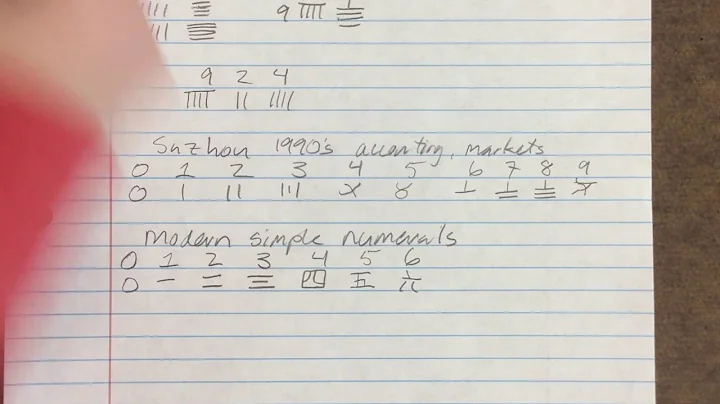 //// 𝍬
//// 9 𝍭 𝍮
9 2 4
𝍭 || ||||
Suzhou 1990's accounting, markets
0 1 2 3 4 5 6 7 8 9
0 〡 〢 〣 〤 〥 〦 〧 〨 〩
Modern simple numerals
0 1 2 3 4 5 6
0 一 二 三 四 五 六